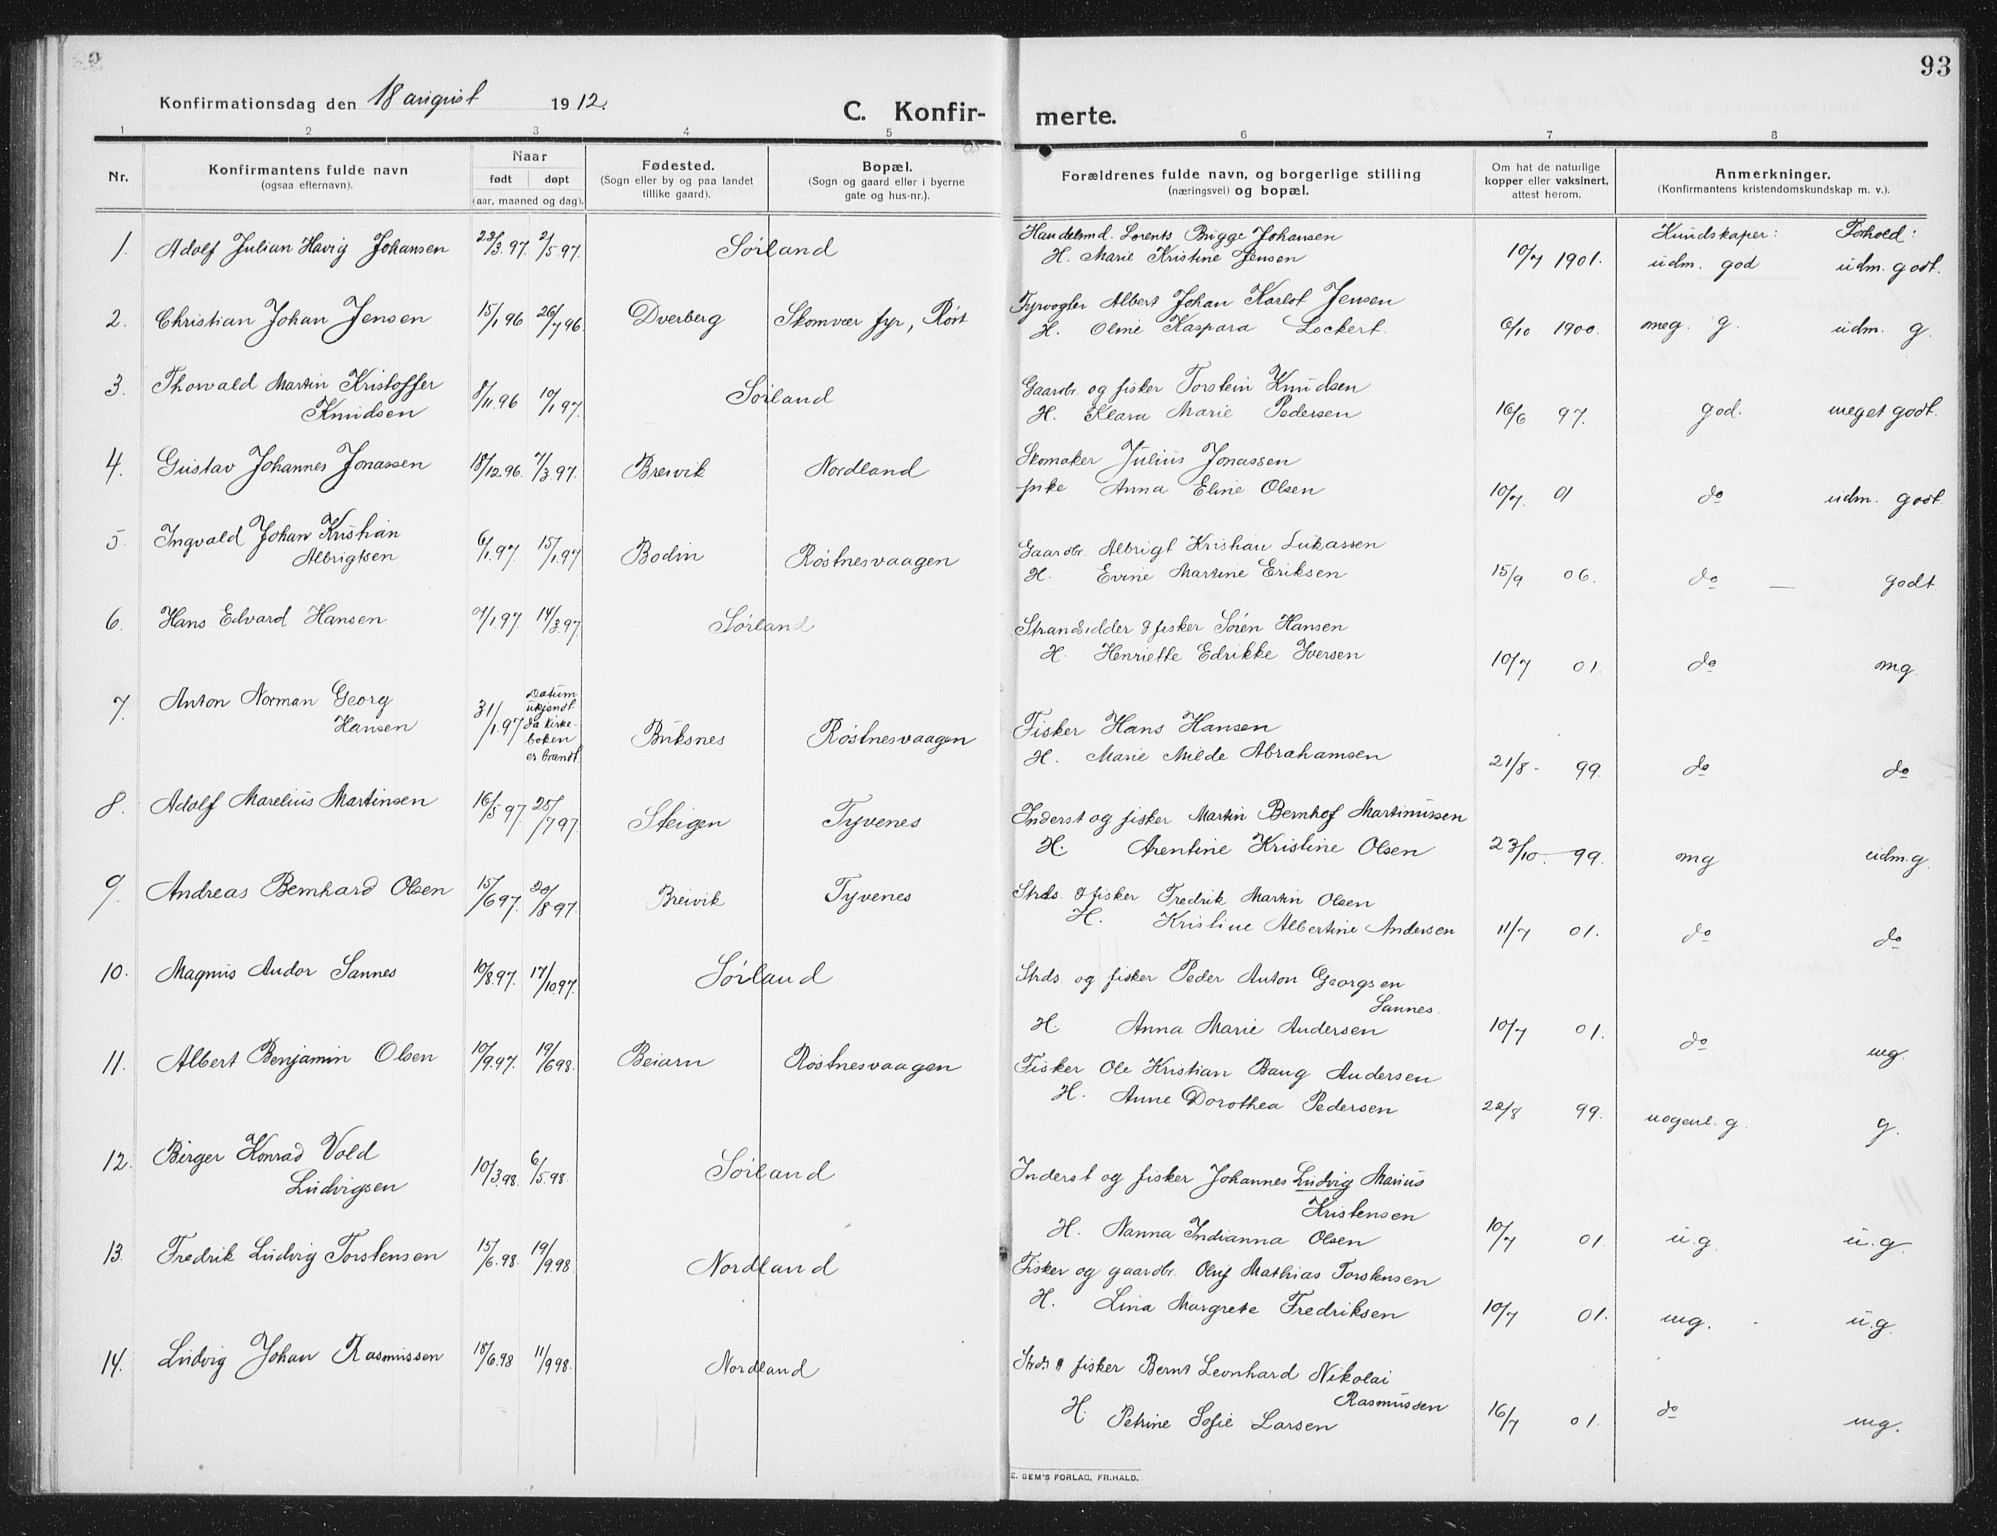 93
Konfirmationsdag den 18 august 1912.
C. Konfir- merte.
1 2 3 4 5 6 7 8
Nr.
Konfirmantens fulde navn
(ogsaa efternavn).
Naar
født døpt
(aar, maaned og dag).
Fødested.
(Sogn eller by og paa landet
tillike gaard).
Bopæl.
(Sogn og gaard eller i byerne
gate og hus-nr.).
Forældrenes fulde navn, og borgerlige stilling
(næringsvei) og bopæl.
Om hat de naturlige
kopper eller vaksinert,
attest herom.
Anmerkninger.
(Konfirmantens kristendomskundskap m. v.).
Kundskaper: Forhold:
1. Adolf Julian Havig Johansen 23/3.97. 2/5.97. Sörland
Handelsmd. Lorents Bugge Johansen
H. Marie Kristine Jensen 10/7 1901. udm. god udm. godt.
2. Christian Johan Jensen 15/1 96 26/7 96. Dverberg Skomvær fyr, Røst
Fyrvogter Albert Johan Karlot Jensen
H. Oline Kaspara Lockert. 6/10 1900. meg. g. udm. g.
3. Thorvald Martin Kristoffer
Knudsen 8/11.96 10/1.97. Sörland
Gaardbr. og fisker Torstein Knudsen
H. Klara Marie Pedersen 16/6 97. god. meget godt.
4. Gustav Johannes Jonassen 18/12.96. 7/3.97. Breivik Nordland
Skomaker Julius Jonassen
pike Anna Eline Olsen 10/7. 01 do udm. godt.
5. Ingvald Johan Kristian
Albrigtsen 6/1.97. 15/1.97 Bodin Röstnesvaagen
Gaardbr. Albrigt Kristian Lukassen
H. Evine Martine Eriksen 15/9 06. do — godt
6. Hans Edvard Hansen 9/1.97. 14/3.97. Sörland
Strandsidder & fisker Sören Hansen
H. Henriette Edrikke Iversen 10/7 01. do mg.
7. Anton Norman Georg
Hansen 31/1.97
Datum
ukjendt
da kirke-
boken
er brændt.
Buksnes Röstnesvaagen
Fisker Hans Hansen
H. Marie Milde Abrahamsen 21/8 - 99. do do
8. Adolf Marelius Martinsen 16/5 97. 25/7 97. Steigen Tyvenes
Inderst og fisker Martin Bernhof Martinussen
H. Arentine Kristine Olsen 23/10. 99. mg udm.g.
9. Andreas Bernhard Olsen 15/6 97. 20/8 97. Breivik Tyvenes
Strds. & fisker Fredrik Martin Olsen
H. Kristine Albertine Andersen 11/7 01. do do
10. Magnus Andor Sannes 10/8.97. 17/10 97. Sörland
Strds. og fisker Peder Anton Georgsen
Sannes.
H. Anna Marie Andersen 10/7 01. do mg.
11. Albert Benjamin Olsen 10/9.97. 19/6 98. Beiarn Röstnesvaagen
Fisker Ole Kristian Baug Andersen
H. Anne Dorothea Pedersen 22/8 99. nogenl. g. g.
12. Birger Konrad Vold
Ludvigsen 10/3.98. 6/5.98. Sörland
Inderst og fisker Johannes Ludvig Marius
Kristensen
H. Nanna Indianna Olsen 10/7 01. u.g. u.g.
13. Fredrik Ludvig Torstensen 15/6.98. 19/9.98. Nordland
Fisker og gaardbr. Oluf Mathias Torstensen
H. Lina Margrete Fredriksen 10/7 01. mg. u.g.
14. Ludvig Johan Rasmussen 18/6.98 11/9 98. Nordland
Strds & fisker Bernt Leonhard Nikolai
Rasmussen
H. Petrine Sofie Larsen 16/7 01. do mg.
E. SEM'S FORLAG, FR.HALD.